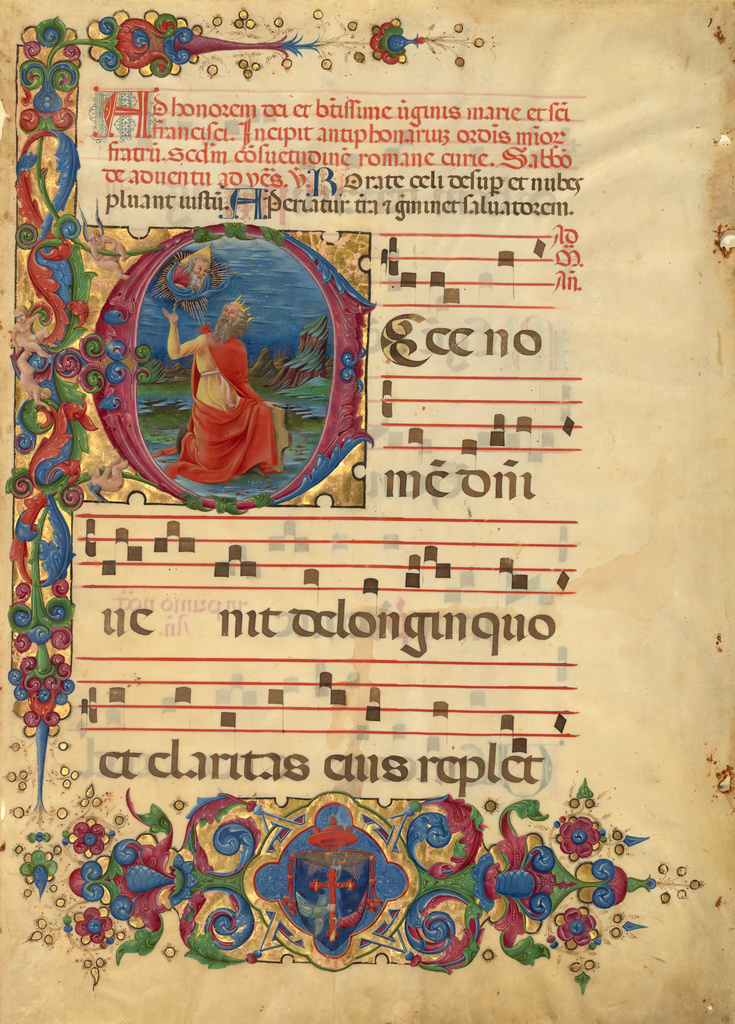 Ad honorem dei et btissime ũginis marie et sci
francisci. Incipit antiphonariuz ordis mior
fratrũ. Scdm cõsuetudinẽ romane curie. Sabbo
de aduentu ad vẽs. V. R Orate celi desup et nubes
pluant iustũ. A Periatur tra ⁊ gminet saluatorem.
Ad
M.
An.
Ecce no
mẽ dñi
ue nit de longinquo
et claritas eius replet